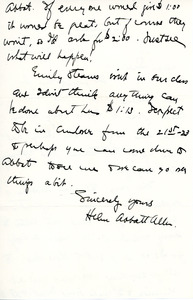 Abbot. If everyone would give $1.00
it would be great. But, course they
won't, so I'll ask for $2.00. Just see
what will happen!
Emily Stearns isn't in our class
and I don't think anything can
be done about her $1.13. I expect
to be in Andover from the 21st-23
so perhaps you can come down to
Abbot to see me & we can go over
things a bit.
Sincerely yours
Helen Abbott Allen.